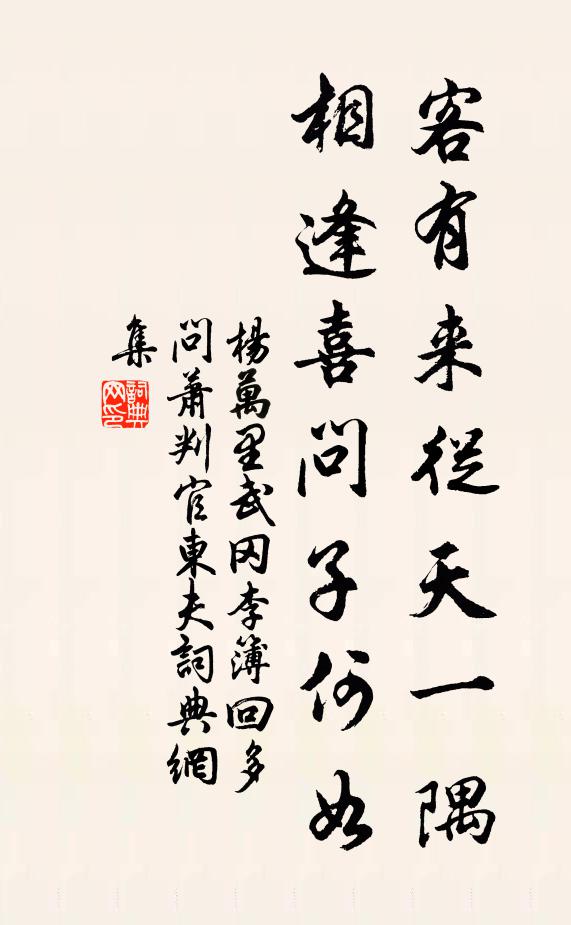 客有来從天一隅
相逢喜問子何如
楊萬里武冈李簿回多
問蕭判官東夫詞典網
集
詞典网印